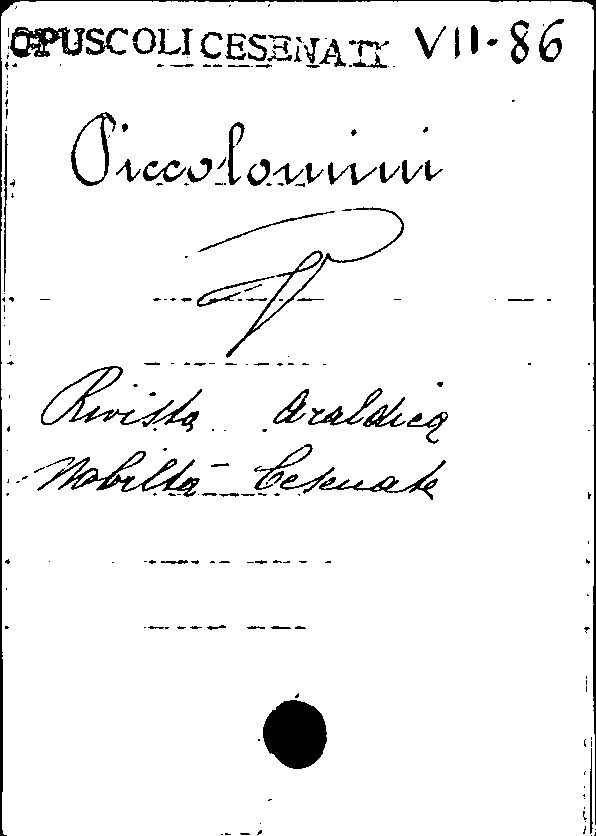 OPUSCOLI CESENATI VII-86
Piccolomini
P
Rivista Araldica
Nobiltà Cesenate